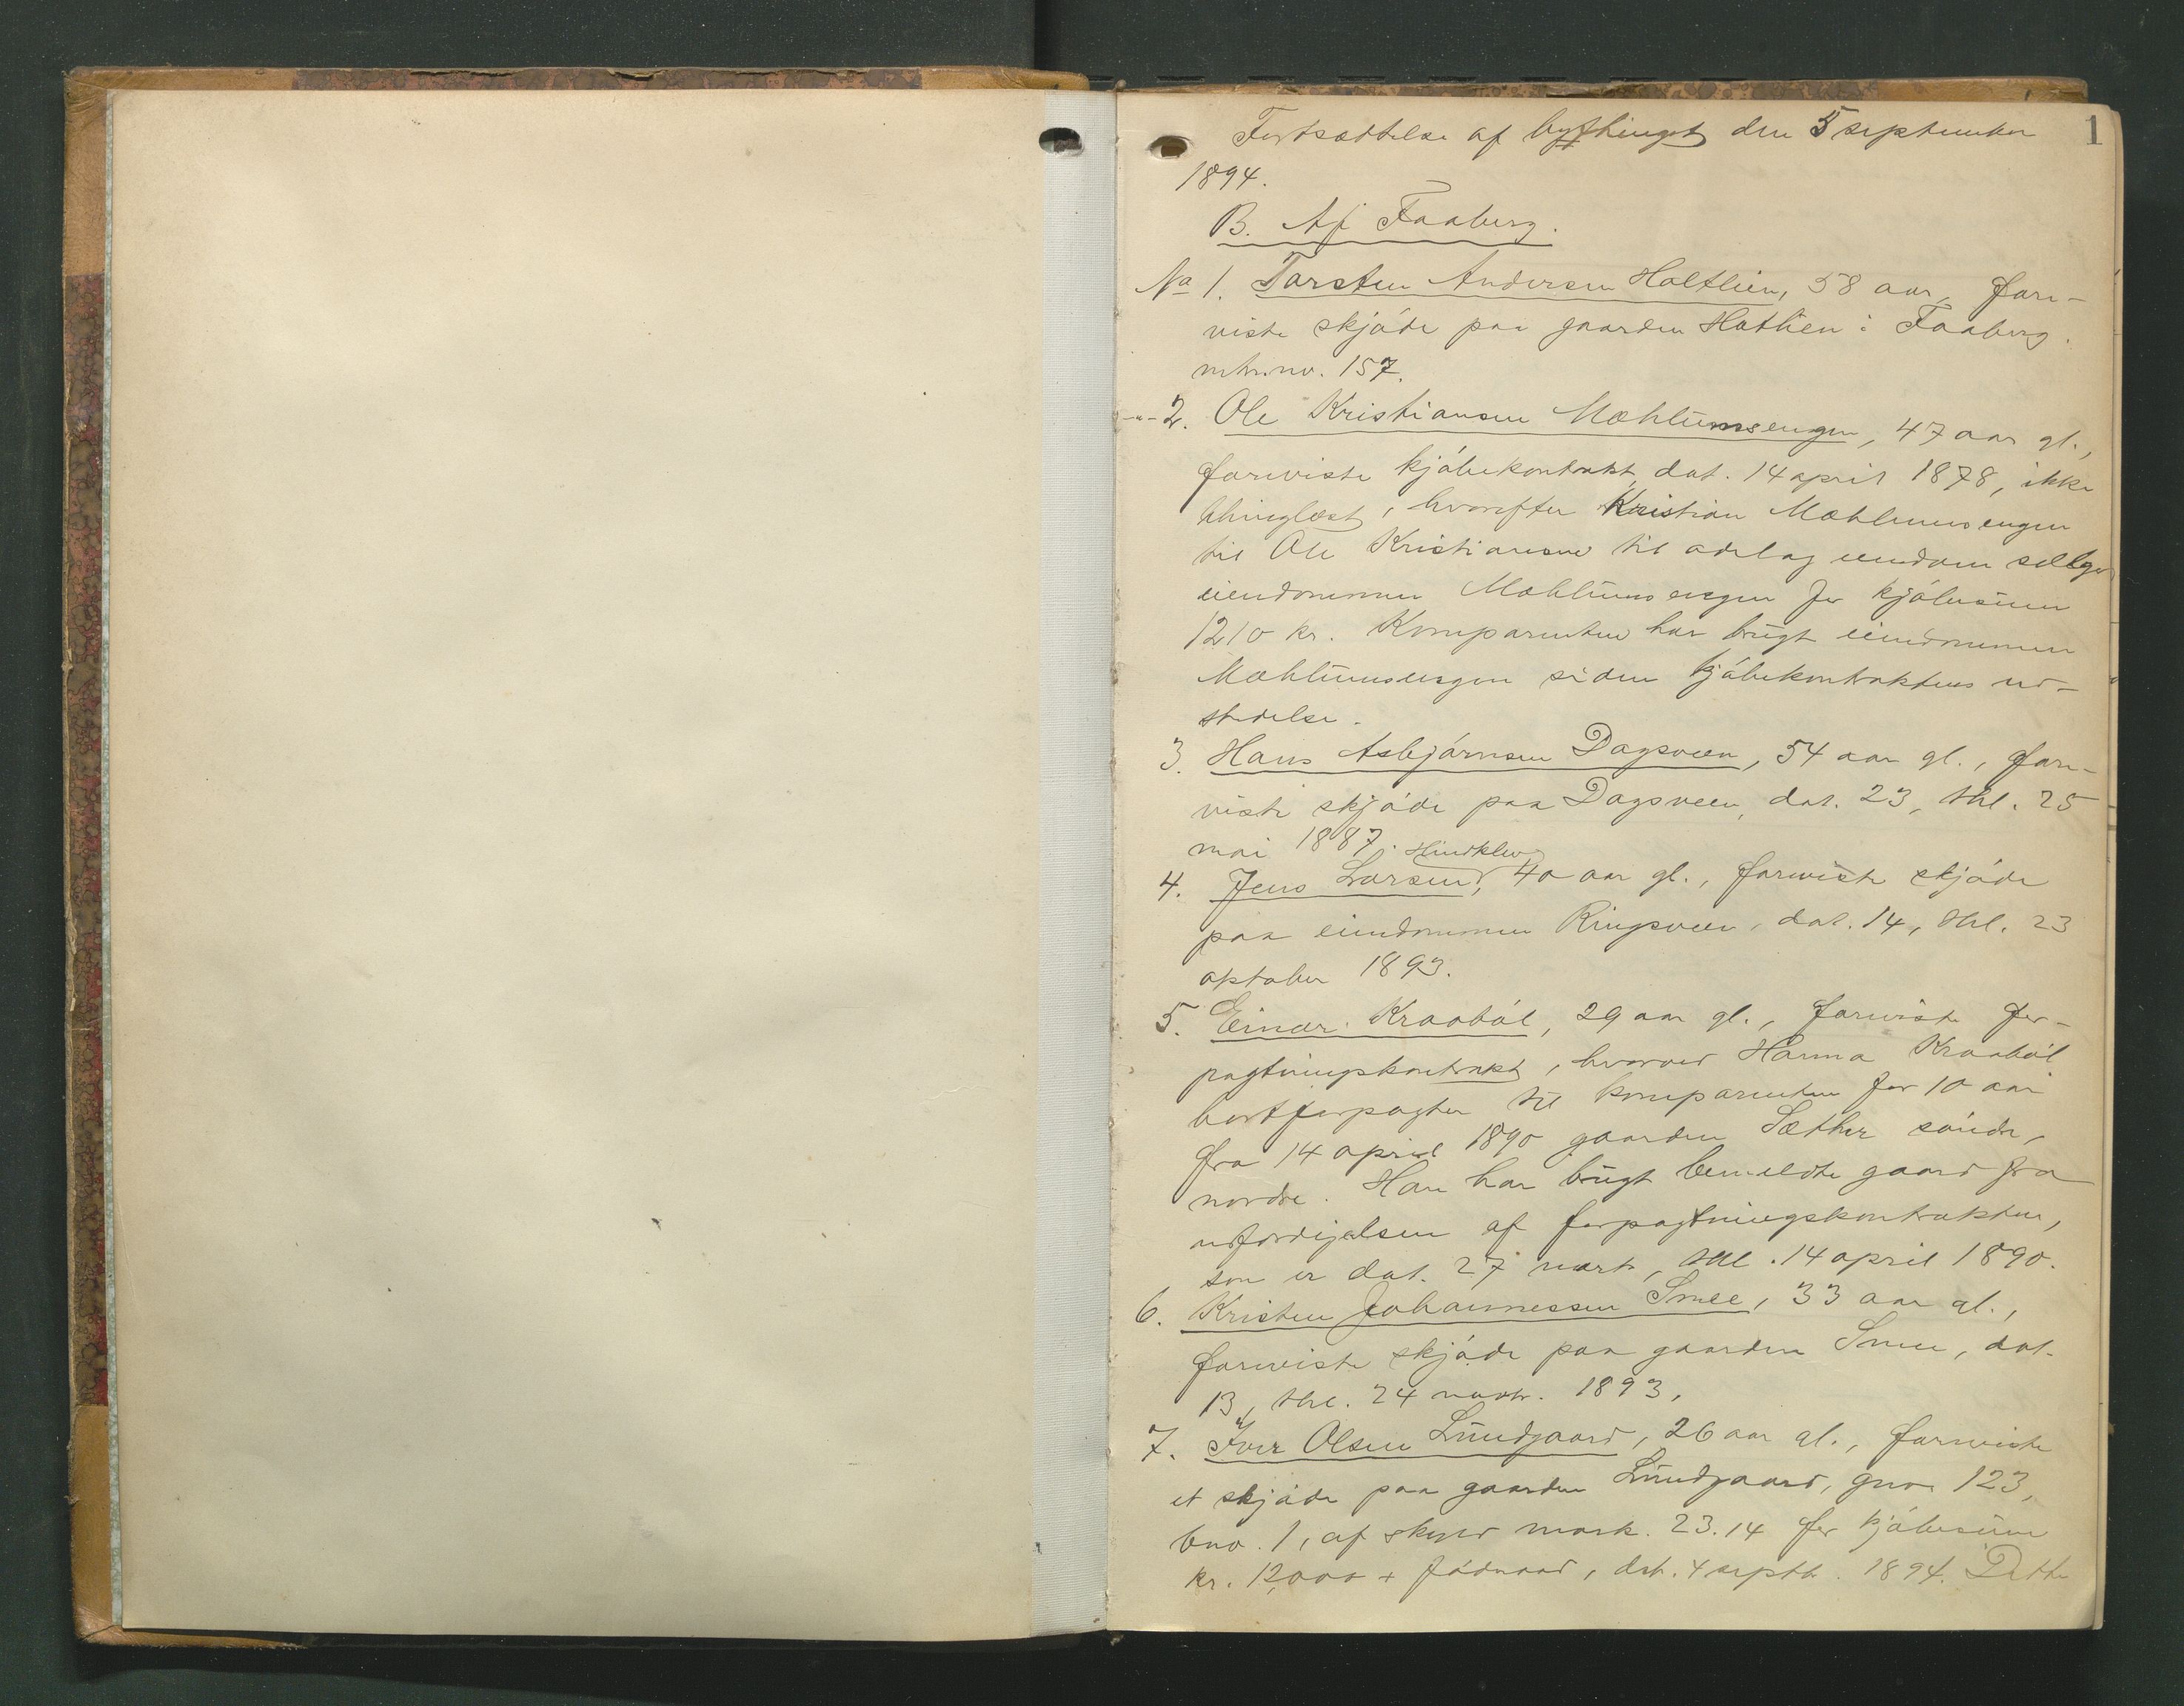 1
Fortsættelse af bygthinget den 5 september
1894.
B. Af Faaberg.
No 1. Torsten Andersen Holtlien, 58 aar, fore-
viste skjøde paa gaarden Holtlien i Faaberg.
mtr.no. 157.
-"- 2. Ole Kristiansen Mæhlumsengen, 47 aar gl.,
foreviste kjøbekontrakt, dat. 14 april 1878, ikke
thinglæst, hvorefter Kristian Mæhlumsengen
til Ole Kristiansen til odel og eiendom sælger
eiendommen Mæhlumsengen for kjøbesum
1210 kr. Komparenten har brugt eiendommen
Mæhlumsengen siden kjøbekontraktens ud-
stedelse.
3. Hans Asbjørnsen Dagsveen, 54 aar gl., fore-
viste skjøde paa Dagsveen, dat. 23, thl. 25
mai 1887.
4. Jens Larsen Hindklev, 40 aar gl., foreviste skjøde
paa eiendommen Ringsveen, dat. 14, thl. 23
oktober 1893.
5. Einar Kraabøl, 29 aar gl., foreviste for-
pagtningskontrakt, hvorved Hanna Kraabøl
bortforpagter til komparenten for 10 aar
fra 14 april 1890 gaarden Sæther søndre,
nordre. Han har brugt bemeldte gaard fra
udfærdigelsen af forpagtningskontrakten,
som er dat. 27 marts, thl. 14 april 1890.
6. Kristen Johannessen Smee, 33 aar gl.,
foreviste skjøde paa gaarden Smee, dat.
13, thl. 24 novbr. 1893.
7. Iver Olsen Lundgaard, 26 aar gl., foreviste
et skjøde paa gaarden Lundgaard, gno. 123,
bno. 1, af skyld mark. 23.14 for kjøbesum
kr. 12,000 + födraad, dat. 4 septb. 1894. Dette